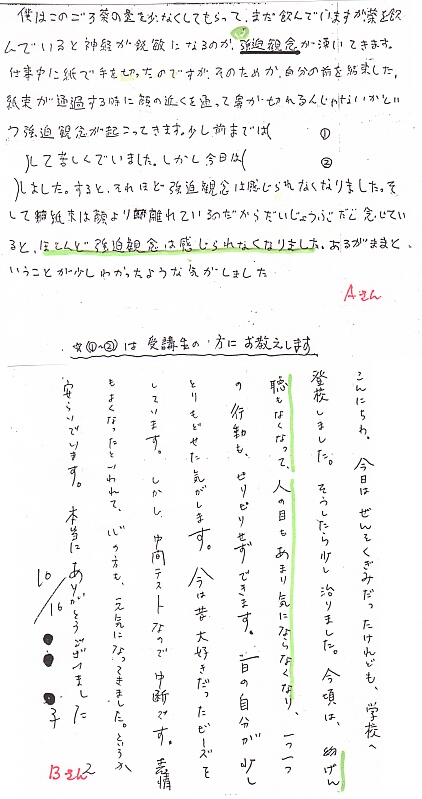 僕はこのごろ薬の量を少なくしてもらって、まだ飲んでいますが薬を飲
んでいると神経が鋭敏になるのか、強迫観念が湧いてきます。
仕事中に紙で手を切ったのですが、そのためか、自分の前を結束した
紙束が通過する時に顔の近くを通って鼻が切れるんじゃないかとい
う強迫観念が起こってきます。少し前までは( ①
)して苦しくでいました。しかし今日は( ②
)しました。すると、それほど強迫観念は感じられなくなりました。そ
して紙束は顔より距離れているのだからだいじょうぶだと念じてい
ると、ほとんど強迫観念は感じられなくなりました。あるがままと
いうことが少しわかったような気がしました
Aさん
☆(①~②)は受講生の方にお教えします
こんにちわ。今日はぜんそくぎみだったけれども、学校へ
登校しました。そうしたら少し治りました。今頃は、幼げん
聴もなくなって、人の目もあまり気にならなくなり、一つ一つ
の行動も、せりせりせずできます。昔の自分が少し
とりもどせた気がします。今は昔大好きだったビーズを
しています。しかし、中間テストなので中断です。表情
もよくなったといわれて、心の方も、元気になってきました。というか
安らいでいます。本当にありがとうございました
10/16 子
Bさん2